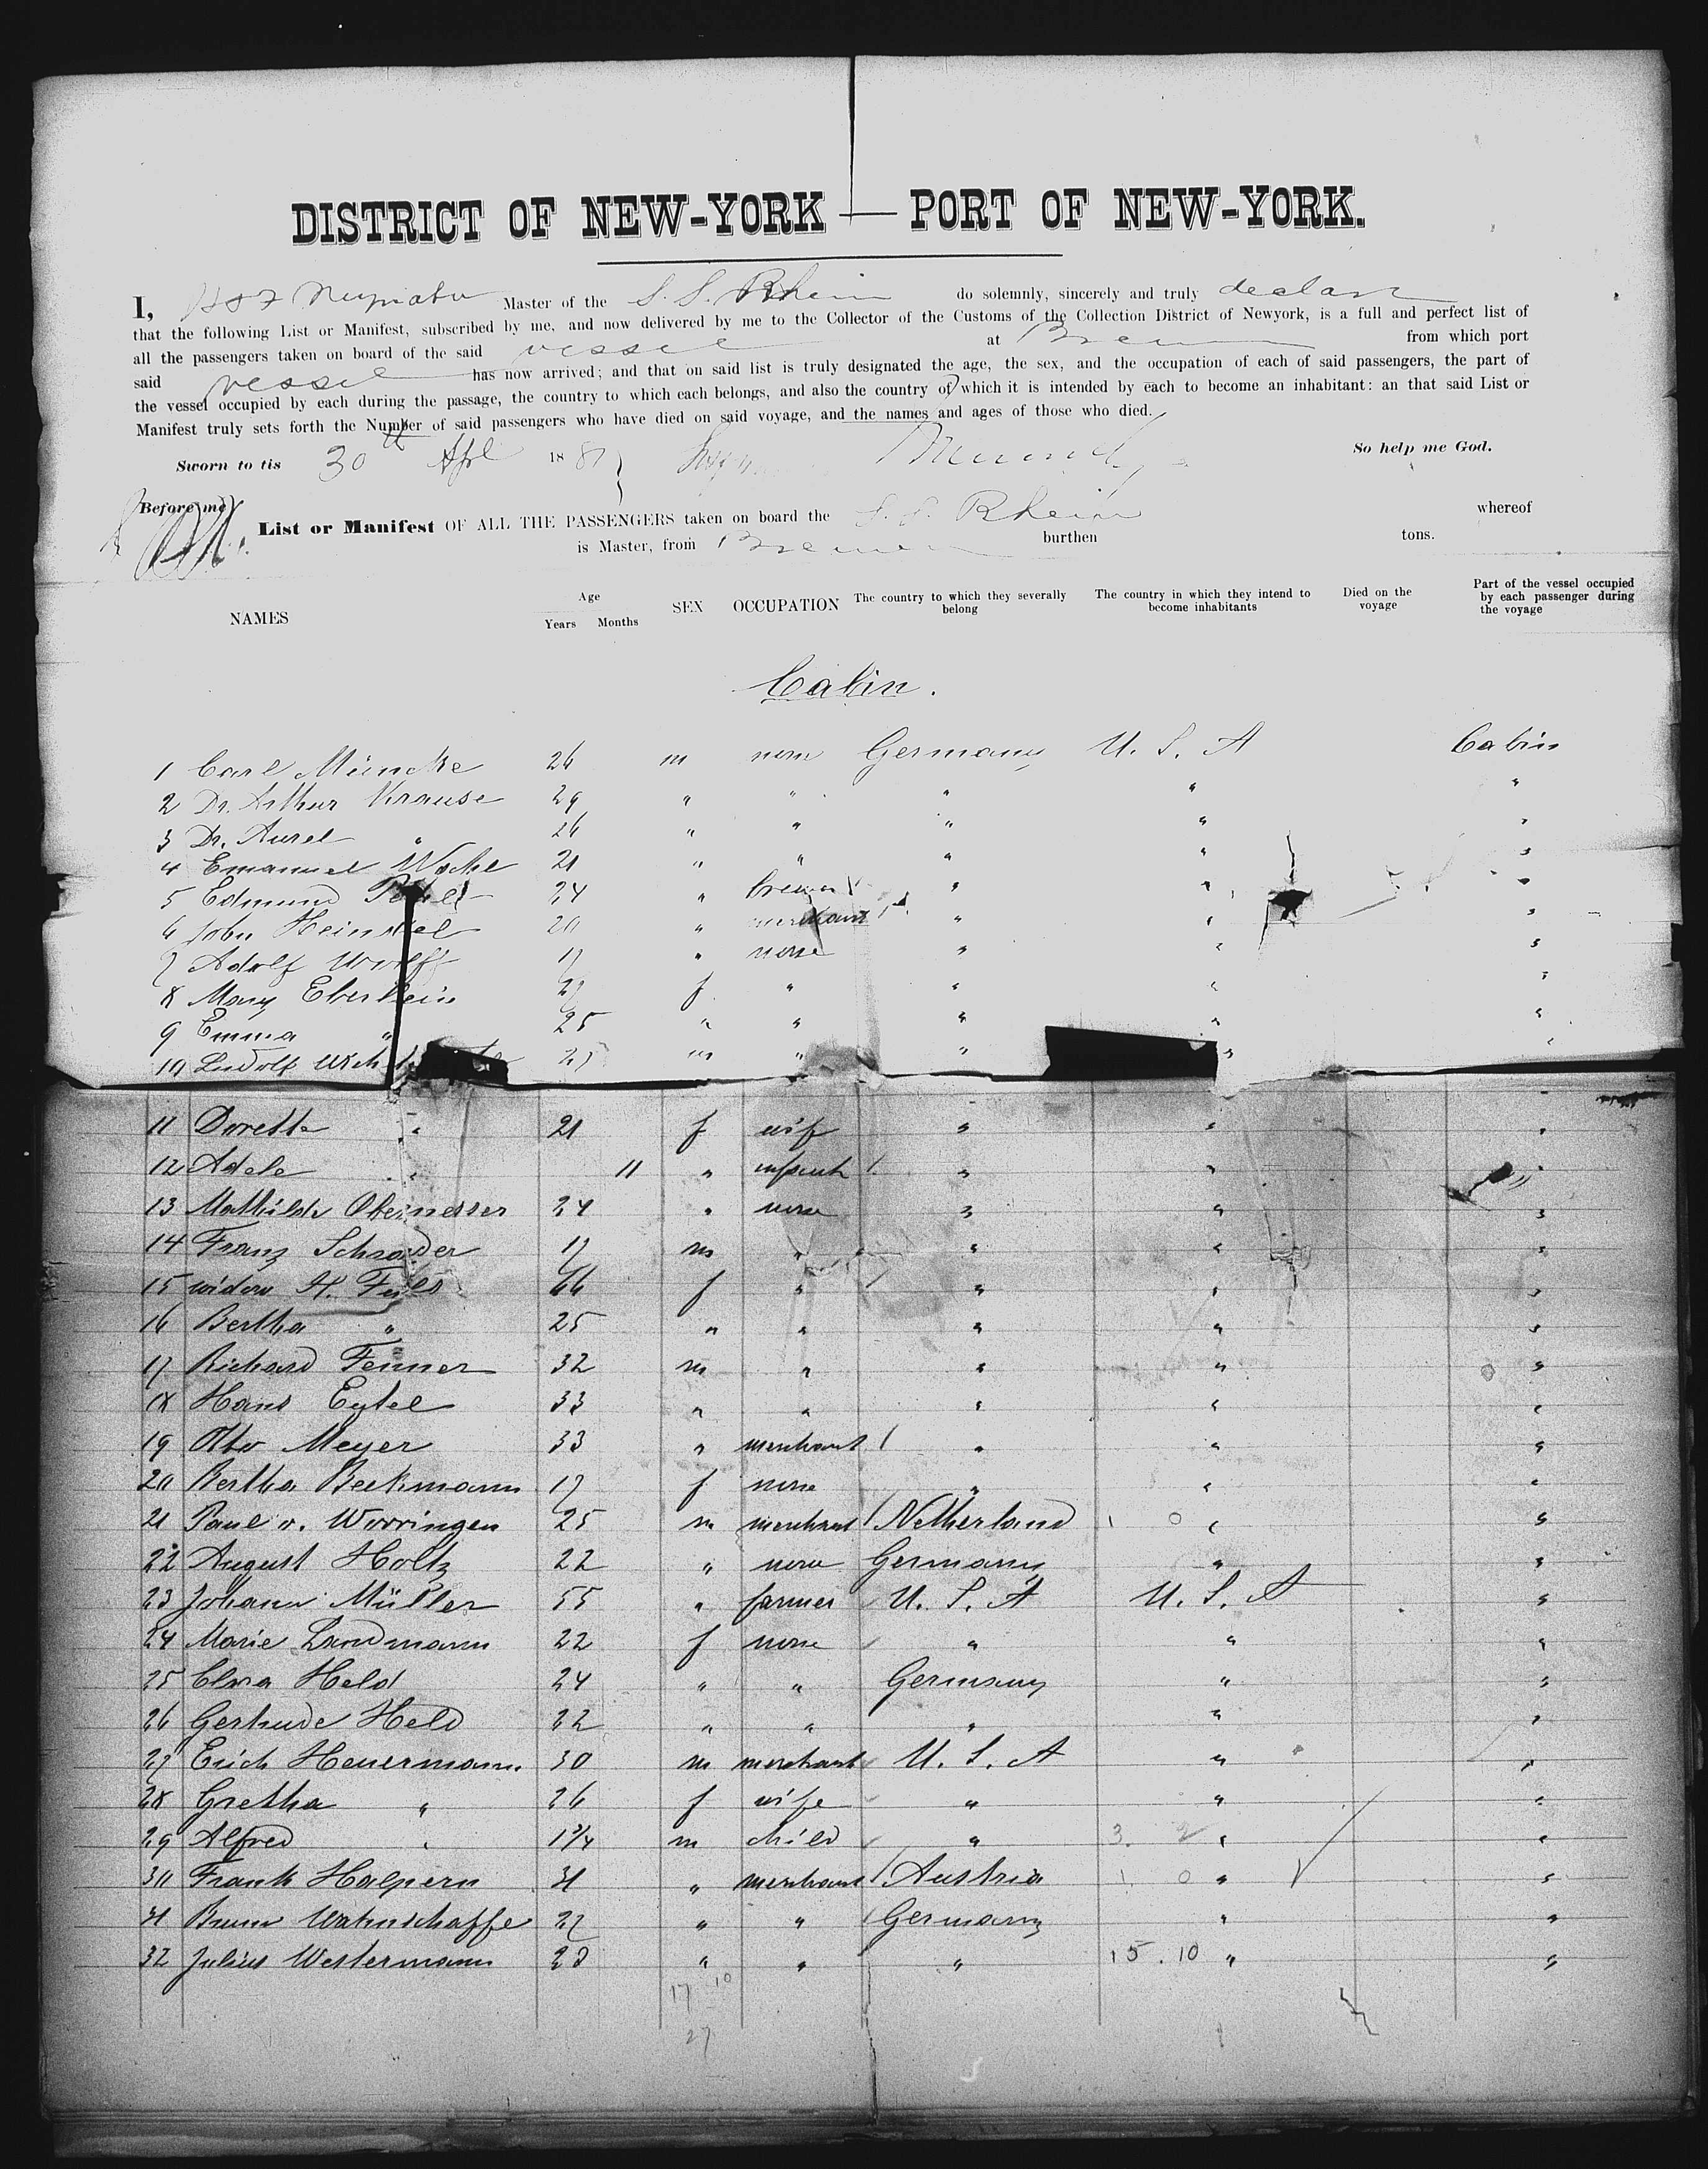 DISTRICT OF NEW-YORK — PORT OF NEW-YORK.
I, Master of the S. S. Rhein do solemnly, sincerely and truly declare
that the following List or Manifest, subscribed by me, and now delivered by me to the Collector of the Customs of the Collection District of Newyork, is a full and perfect list of
all the passengers taken on board of the said vessel at Bremen from which port
said vessel has now arrived; and that on said list is truly designated the age, the sex, and the occupation of each of said passengers, the part of
the vessel occupied by each during the passage, the country to which each belongs, and also the country of which it is intended by each to become an inhabitant: an that said List or
Manifest truly sets forth the Number of said passengers who have died on said voyage, and the names and ages of those who died.
Sworn to tis 30th Apl 1881 So help me God.
Before me
List or Manifest OF ALL THE PASSENGERS taken on board the S. S. Rhein whereof
is Master, from Bremen burthen tons.
NAMES Age Years Months SEX OCCUPATION The country to which they severally belong The country in which they intend to become inhabitants Died on the voyage Part of the vessel occupied by each passenger during the voyage
Cabin.
1 Carl Müncke 26 m none Germany U. S. A Cabin
2 Dr. Arthur Krause 29 " " " " "
3 Dr. Aurel " 26 " " " " "
4 Emanuel 21 " " " " "
5 Edmund 24 " brewer " " "
6 John Heinkel 20 " merchant " " "
7 Adolf Wolff 17 " none " " "
8 Mary Eberlein 27 f " " " "
9 Emma " 25 " " " " "
10 Ludolf 27 m " " " "
11 Dorette " 21 f wife " " "
12 Adele " 11 " infant " " "
13 Mathilde Obernesser 24 " none " " "
14 Franz Schrader 17 m " " " "
15 widow A. 66 f " " " "
16 Bertha " 25 " " " " "
17 Richard Fenner 32 m " " " "
18 Hans Eytel 33 " " " " "
19 Otto Meyer 33 " merchant " " "
20 Bertha Beckmann 17 f none " " "
21 Paul v. Worringen 25 m merchant Netherland 1 0 " "
22 August Holtz 22 " none Germany " "
23 Johann Müller 55 " farmer U. S. A U. S. A "
24 Marie Landmann 22 f none " " "
25 Clara Held 24 " " Germany " "
26 Gertrude Held 22 " " " " "
27 Erich Heuermann 30 m merchant U. S. A " "
28 Gretha " 26 f wife " " "
29 Alfred " 1 3/4 m child " 3. 2 " "
30 Frank Halpern 31 " merchant Austria 1 0 " "
31 Bruno Watenschaffe 27 " " Germany " "
32 Julius Westermann 28 " " " 15. 10 " "
17 10
27